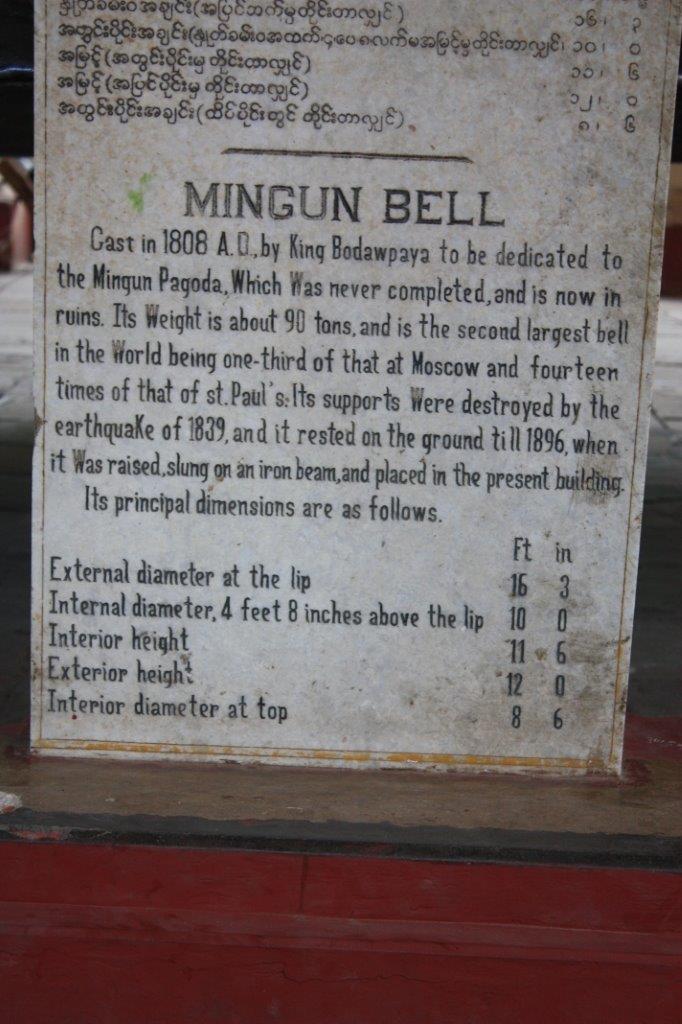 နှုတ်ခမ်းဝအချင်း(အပြင်ဘက်မှတိုင်းတာလျှင်) ၁၆၊ ၃
အတွင်းပိုင်းအချင်း(နှုတ်ခမ်းဝအထက်၊၄ပေ၈လက်မအမြင့်မှတိုင်းတာလျှင်၊ ၁၀၊ ၀
အမြင့်(အတွင်းပိုင်းမှ တိုင်းတာလျှင်) ၁၁၊ ၆
အမြင့်(အပြင်ပိုင်းမှ တိုင်းတာလျှင်) ၁၂၊ ၀
အတွင်းပိုင်းအချင်း(ထိပ်ပိုင်းတွင် တိုင်းတာလျှင်) ၈၊ ၆
MINGUN BELL
Cast in 1808 A.D., by King Bodawpaya to be dedicated to
the Mingun Pagoda, Which Was never completed, and is now in
ruins. Its Weight is about 90 tons, and is the second largest bell
in the World being one-third of that at Moscow and fourteen
times of that of st. Paul's. Its supports Were destroyed by the
earthquaKe of 1839, and it rested on the ground till 1896, when
it Was raised, slung on an iron beam, and placed in the present building.
Its principal dimensions are as follows.
Ft in
External diameter at the lip 16 3
Internal diameter, 4 feet 8 inches above the lip 10 0
Interior height 11 6
Exterior height 12 0
Interior diameter at top 8 6